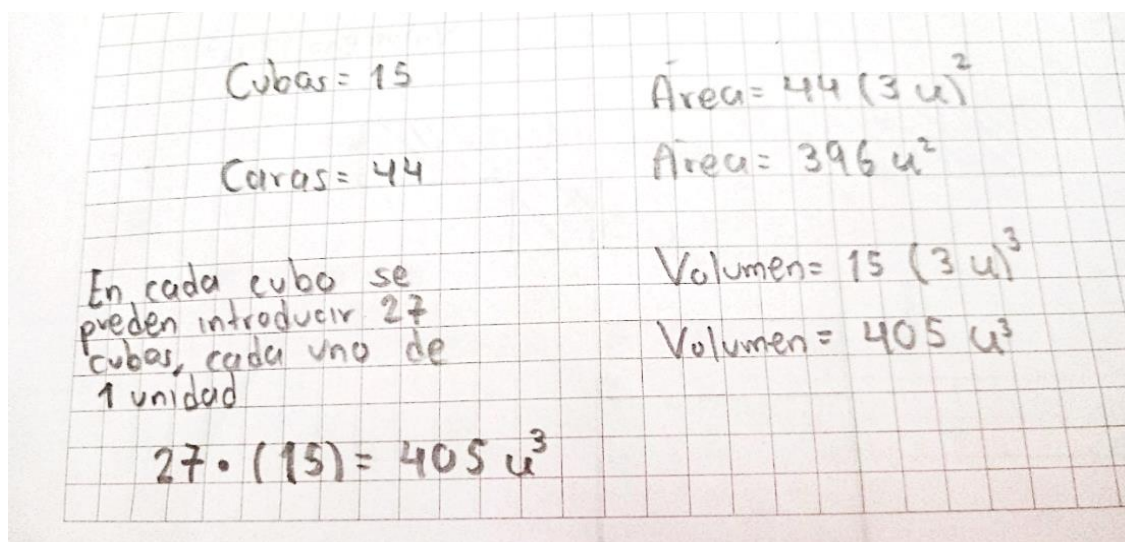 Cubos = 15
Caras = 44
En cada cubo se
pueden introducir 27
cubos, cada uno de
1 unidad
27 • (15) = 405 u³
Área = 44 (3 u)²
Área = 396 u²
Volumen = 15 (3 u)³
Volumen = 405 u³